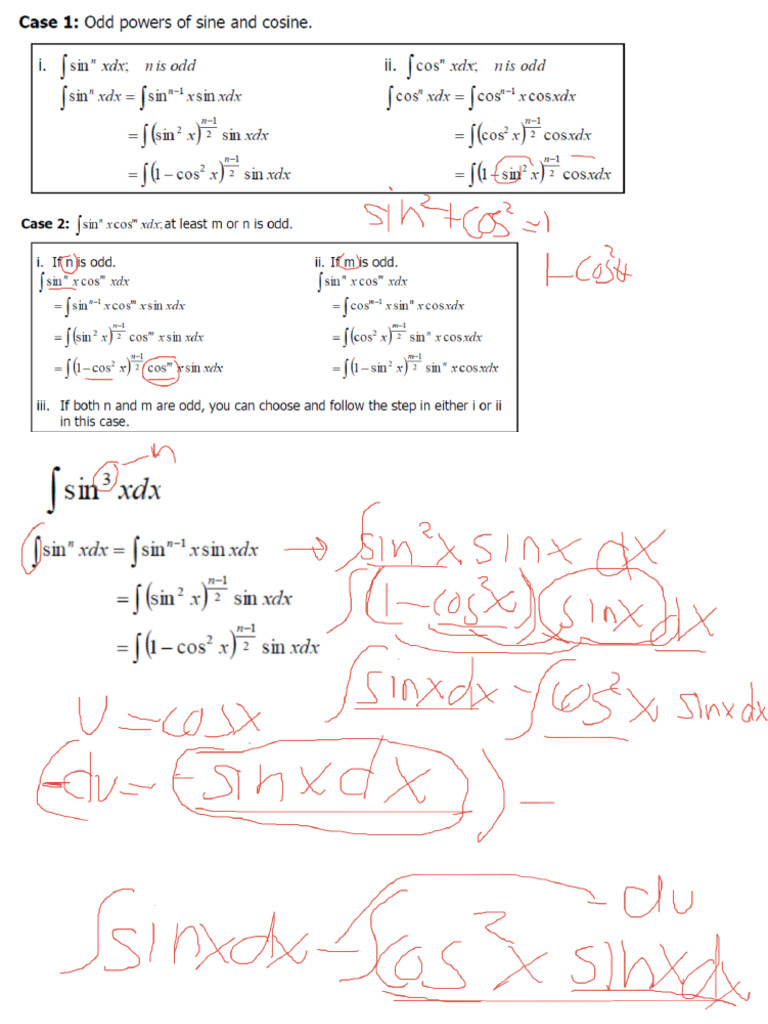 Case 1: Odd powers of sine and cosine.
i. ∫sinⁿ xdx; n is odd
∫sinⁿ xdx = ∫sinⁿ⁻¹ x sin xdx
= ∫(sin² x)^((n−1)/2) sin xdx
= ∫(1 − cos² x)^((n−1)/2) sin xdx
ii. ∫cosⁿ xdx; n is odd
∫cosⁿ xdx = ∫cosⁿ⁻¹ x cos xdx
= ∫(cos² x)^((n−1)/2) cos xdx
= ∫(1 − sin² x)^((n−1)/2) cos xdx
sin² + cos² = 1
1 − cos²x
Case 2: ∫sinⁿ x cosᵐ xdx; at least m or n is odd.
i. If n is odd.
∫sinⁿ x cosᵐ xdx
= ∫sinⁿ⁻¹ x cosᵐ x sin xdx
= ∫(sin² x)^((n−1)/2) cosᵐ x sin xdx
= ∫(1 − cos² x)^((n−1)/2) cosᵐ x sin xdx
ii. If m is odd.
∫sinⁿ x cosᵐ xdx
= ∫cosᵐ⁻¹ x sinⁿ x cos xdx
= ∫(cos² x)^((m−1)/2) sinⁿ x cos xdx
= ∫(1 − sin² x)^((m−1)/2) sinⁿ x cos xdx
iii. If both n and m are odd, you can choose and follow the step in either i or ii
in this case.
n
∫sin³ xdx
∫sinⁿ xdx = ∫sinⁿ⁻¹ x sin xdx → ∫sin²x sinx dx
= ∫(sin² x)^((n−1)/2) sin xdx
∫(1 − cos²x)(sinx)dx
= ∫(1 − cos² x)^((n−1)/2) sin xdx
∫sinxdx − ∫cos²x sinxdx
U = cosx
−du = −sinxdx) −
−du
∫sinxdx − ∫cos²x sinxdx